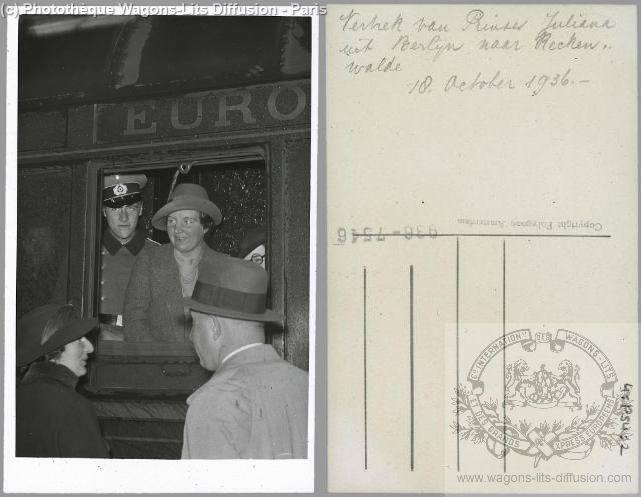 (c) Photothèque Wagons-Lits Diffusion - Paris
EURO
Vertrek van Prinses Juliana
uit Berlyn naar Recken.
walde
18. October 1936.-
Copyright Polygoon Amsterdam
936-7546
Cie INTERNATIONALE DES WAGONS-LITS
ET DES GRANDS EXPRESS EUROPÉENS
www.wagons-lits-diffusion.com